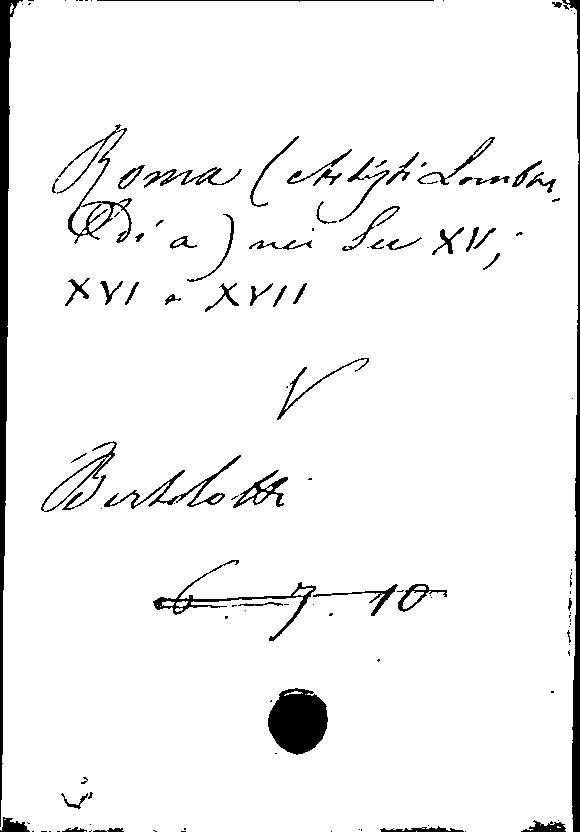 Roma (Artisti Lombar-
di a) nei Sec XV,
XVI e XVII
V
Bertolotti
6. 7. 10